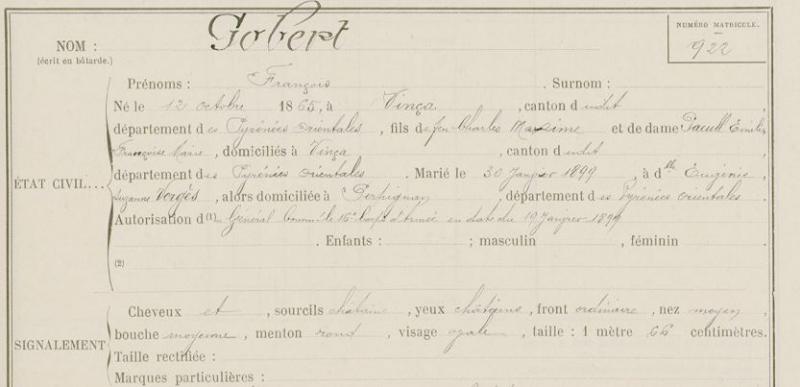 NUMÉRO MATRICULE.
922
NOM : Gobert
(écrit en bâtarde.)
Prénoms : François . Surnom :
Né le 12 octobre 1865, à Vinça , canton dudit ,
département des Pyrénées orientales , fils de feu Charles Maxime et de dame Pacull Emilie
Françoise Marie , domiciliés à Vinça , canton dudit ,
département des Pyrénées orientales . Marié le 30 Janvier 1899 , à dlle Eugénie
ÉTAT CIVIL...
Suzanne Vergès , alors domiciliée à Perpignan , département des Pyrénées orientales .
Autorisation d(1)u Général Commt le 16e Corps d'Armée en date du 19 Janvier 1899
. Enfants : ; masculin , féminin .
(2)
Cheveux et , sourcils châtains , yeux châtains , front ordinaire , nez moyen ,
bouche moyenne , menton rond , visage ovale , taille : 1 mètre 66 centimètres.
SIGNALEMENT
Taille rectifiée :
Marques particulières :